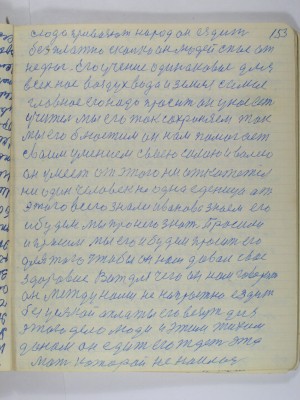 153
сюда приезжает народ он ездит
бесплатно сколько он людей спас от
недуг. Его учение одинаковое для
всех нас воздух вода и земля самое
главное его надо просит он умеет
учителя мы его так сохраняем так
мы его бластим он нам помогает
своим умением своею силою и волею
он умеет от этого ни откажется
ни один человек ни одна еденица от
этого всего знали Иванова знаем его
и будем мы про него знат. Просили
и просим мы его и будем просит его
для того чтобы он нам давал свое
здоровие Вот для чего он нам говорит
он между нами не напрасно ездит
без всякой оплаты его везут для
этого дело люди и этим тихим
даном он едит его ждет эта
мат которой не